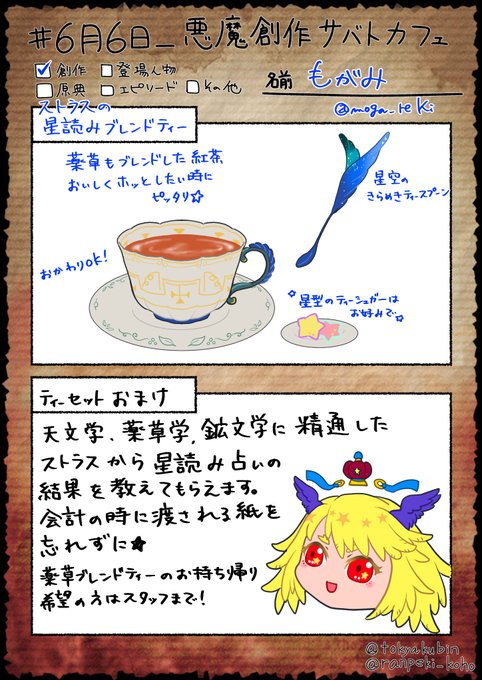 #6月6日_悪魔創作サバトカフェ
創作 登場人物
原典 エピソード その他
名前 もがみ
@moga_reki
ストラスの
星読みブレンドティー
薬草もブレンドした紅茶
おいしくホッとしたい時に
ピッタリ☆
星空の
きらめきティースプーン
おかわりOK!
☆星型のティーシュガーは
お好みで☆
ティーセット おまけ
天文学、薬草学、鉱文学に精通した
ストラスから星読み占いの
結果を教えてもらえます。
会計の時に渡される紙を
忘れずに★
薬草ブレンドティーのお持ち帰り
希望の方はスタッフまで!
@tokyakubin
@ranpeki_koho